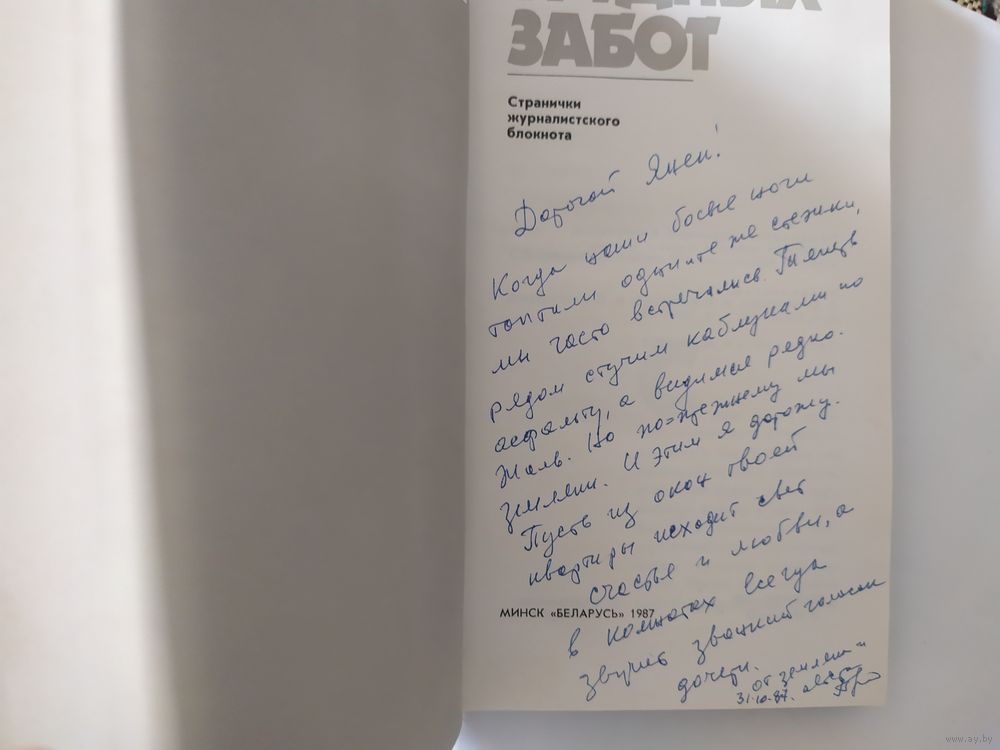 ЗАБОТ
Странички
журналистского
блокнота
Дорогой Яцек!
Когда наши босые ноги
топтали одни и те же стежки,
мы часто встречались. Теперь
рядом стучим каблуками по
асфальту, а видимся редко.
Жаль. Но по=прежнему мы
земляки. И этим я дорожу.
Пусть из окон твоей
квартиры исходит свет
счастья и любви, а
МИНСК «БЕЛАРУСЬ» 1987
в комнатах всегда
звучит звонкий голосок
дочери.
от земляка
31.10.87.
www.ay.by